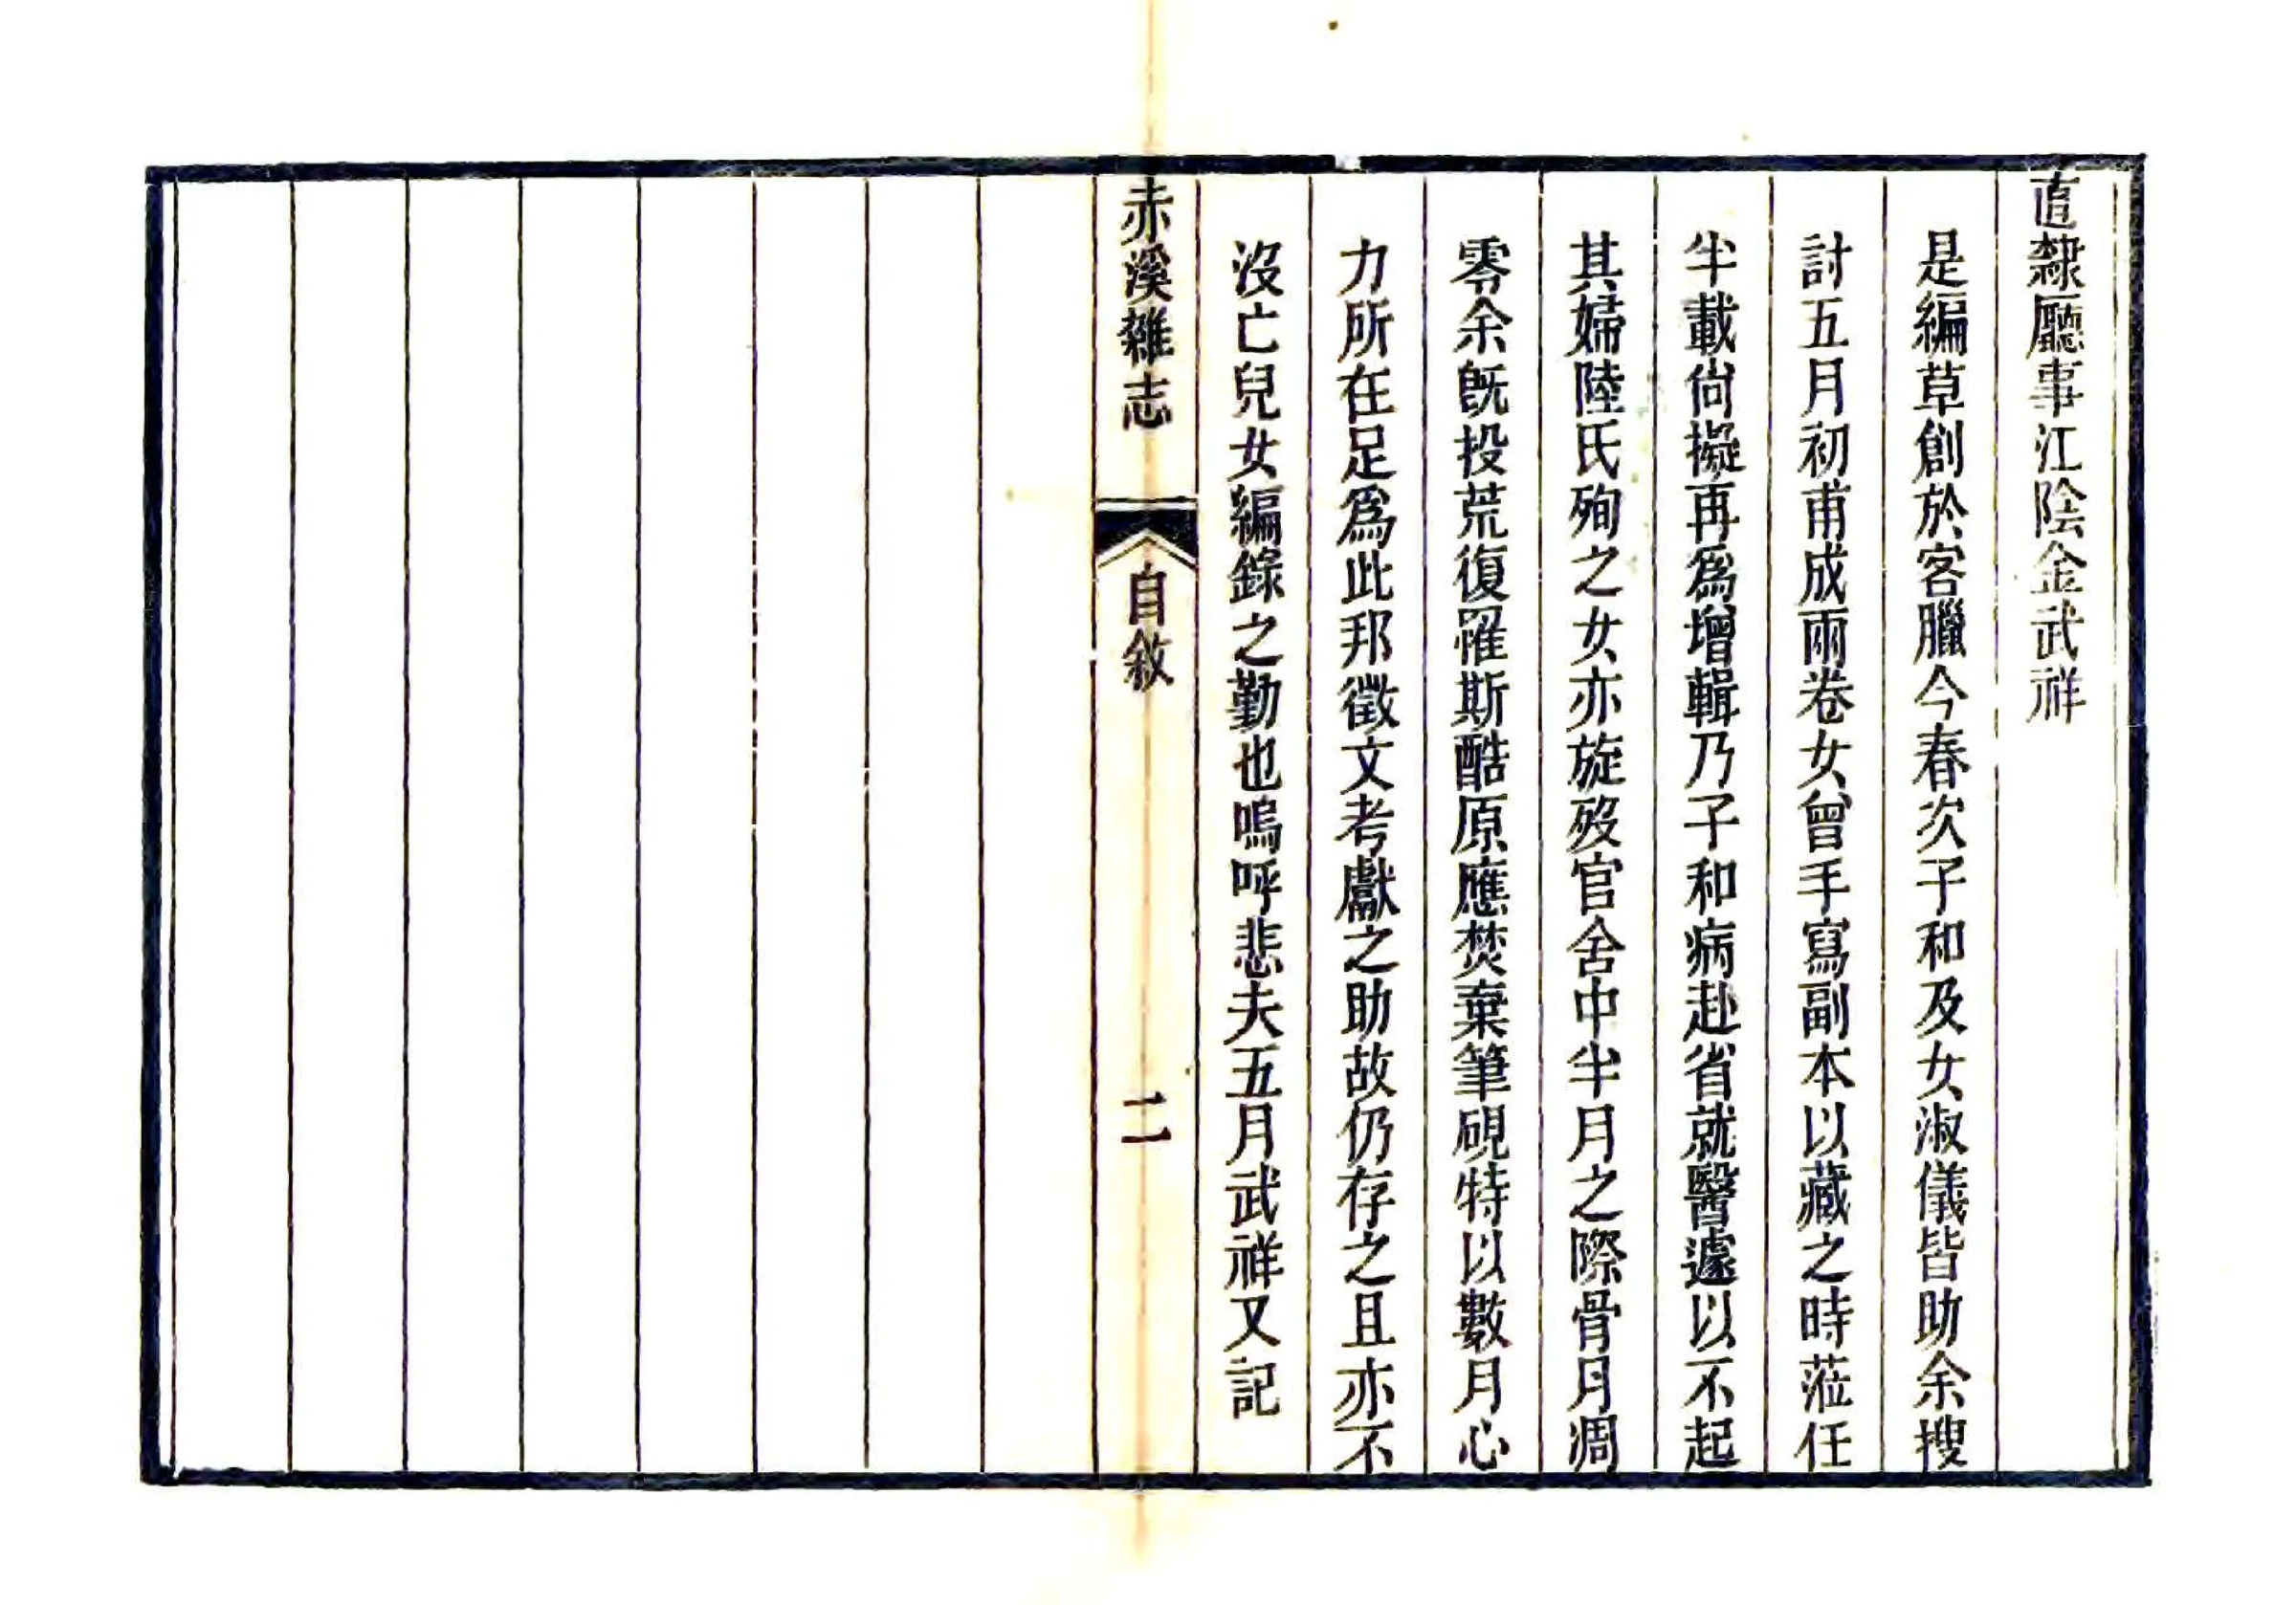 直隸廳事江陰金武祥
是編草創於客臘今春次子和及女淑儀皆助余搜
討五月初甫成兩卷女曾手寫副本以藏之時蒞任
半載尙擬再爲增輯乃子和病赴省就醫遽以不起
其婦陸氏殉之女亦旋歿官舍中半月之際骨月凋
零余旣投荒復罹斯酷原應焚棄筆硯特以數月心
力所在足爲此邦徵文考獻之助故仍存之且亦不
沒亡兒女編錄之勤也嗚呼悲夫五月武祥又記
赤溪雜志
自敘
二